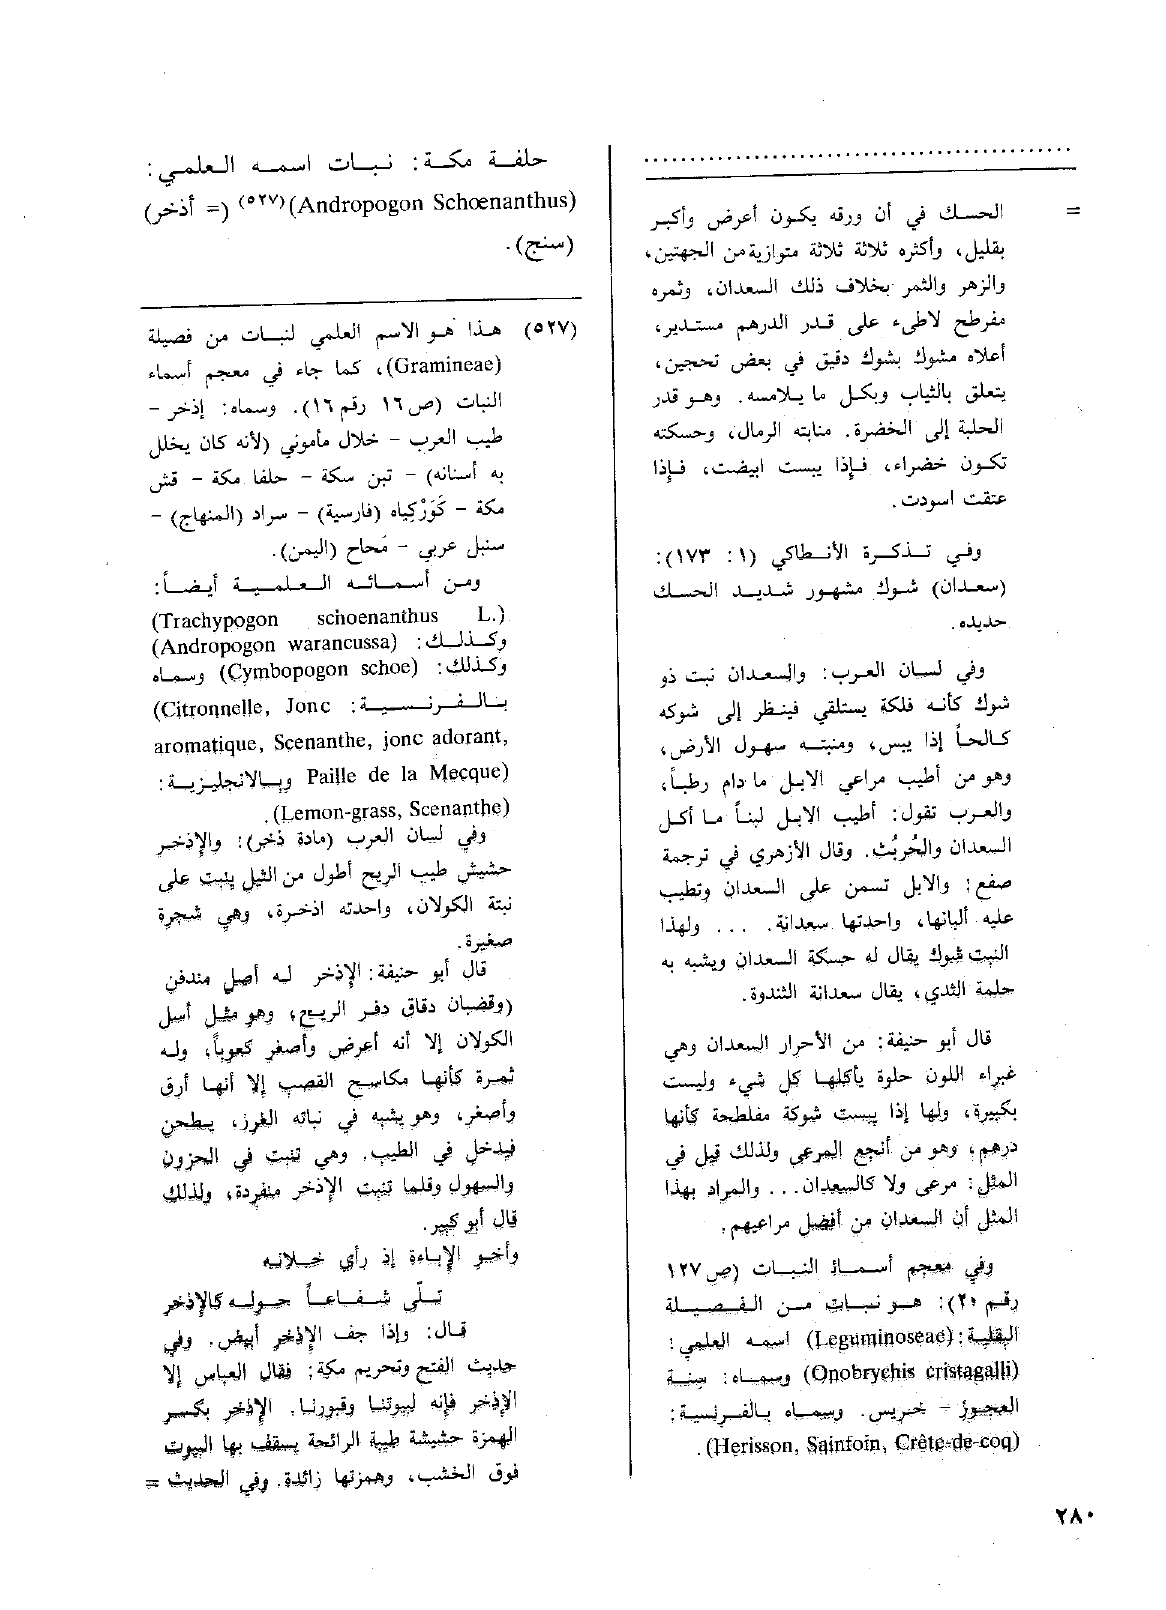 =
الحسك في أن ورقه يكون أعرض وأكبر
بقليل، وأكثره ثلاثة ثلاثة متوازية من الجهتين،
والزهر والثمر بخلاف ذلك السعدان، وثمره
مفرطح لاطىء على قدر الدرهم مستدير،
أعلاه مشوك بشوك دقيق في بعض تحجين،
يتعلق بالثياب وبكل ما يلامسه. وهو قدر
الحلبة إلى الخضرة. منابته الرمال، وحسكته
تكون خضراء، فإذا يبست ابيضت، فإذا
عتقت اسودت.
وفي تذكرة الأنطاكي (١: ١٧٣):
(سعدان) شوك مشهور شديد الحسك
حديده.
وفي لسان العرب: والسعدان نبت ذو
شوك كأنه فلكة يستلقي فينظر إلى شوكه
كالحاً إذا يبس، ومنبته سهول الأرض،
وهو من أطيب مراعي الابل ما دام رطباً،
والعرب تقول: أطيب الابل لبناً ما أكل
السعدان والحُربُث. وقال الأزهري في ترجمة
صفع: والابل تسمن على السعدان وتطيب
عليه ألبانها، واحدتها سعدانة. ... ولهذا
النبت شوك يقال له حسكة السعدان ويشبه به
حلمة الثدي، يقال سعدانة الثندوة.
قال أبو حنيفة: من الأحرار السعدان وهي
غبراء اللون حلوة يأكلها كل شيء وليست
بكبيرة، ولها إذا يبست شوكة مفلطحة كأنها
درهم، وهو من أنجع المرعى ولذلك قيل في
المثل: مرعى ولا كالسعدان... والمراد بهذا
المثل أن السعدان من أفضل مراعيهم.
وفي معجم أسماء النبات (ص ١٢٧
رقم ٢٠): هو نبات من الفصيلة
البقلية: (Leguminoseae) اسمه العلمي:
(Onobrychis cristagalli) وسماه: سنة
العجوز - خريس. وسماه بالفرنسية:
(Herisson, Sainfoin, Crête-de-coq).
حلفة مكة: نبات اسمه العلمي:
(Andropogon Schoenanthus)(٥٢٧) (= أذخر)
(سنج).
(٥٢٧) هذا هو الاسم العلمي لنبات من فصيلة
(Gramineae)، كما جاء في معجم أسماء
النبات (ص ١٦ رقم ١٦). وسماه: إذخر -
طيب العرب - خلال مأموني (لأنه كان يخلل
به أسنانه) - تبن سكة - حلفا مكة - قش
مكة - كَوَرْكِياه (فارسية) - سراد (المنهاج) -
سنبل عربي - مَحاح (اليمن).
ومن أسمائه العلمية أيضاً:
(Trachypogon schoenanthus L.)
وكذلك: (Andropogon warancussa)
وكذلك: (Cymbopogon schoe) وسماه
بالفرنسية: (Citronnelle, Jonc
aromatique, Scenanthe, jonc adorant,
Paille de la Mecque) وبالانجليزية:
(Lemon-grass, Scenanthe).
وفي لسان العرب (مادة ذخر): والإذخر
حشيش طيب الريح أطول من الثيل ينبت على
نبتة الكولان، واحدته اذخرة، وهي شجرة
صغيرة.
قال أبو حنيفة: الإذخر له أصل مندفن
(وقضبان دقاق دفر الريح، وهو مثل أسل
الكولان إلا أنه أعرض وأصغر كعوباً، وله
ثمرة كأنها مكاسح القصب إلا أنها أرق
وأصغر، وهو يشبه في نباته الغرز، يطحن
فيدخل في الطيب. وهي تنبت في الحزون
والسهول وقلما تنبت الإذخر منفردة، ولذلك
قال أبو كبير.
وأخو الإباءة إذ رأي خلانه
تلّى شفاعاً حوله كالإذخر
قال: وإذا جف الإذخر أبيض. وفي
حديث الفتح وتحريم مكة: فقال العباس إلا
الإذخر فإنه لبيوتنا وقبورنا. الإذخر بكسر
الهمزة حشيشة طيبة الرائحة يسقف بها البيوت
فوق الخشب، وهمزتها زائدة. وفي الحديث =
٢٨٠